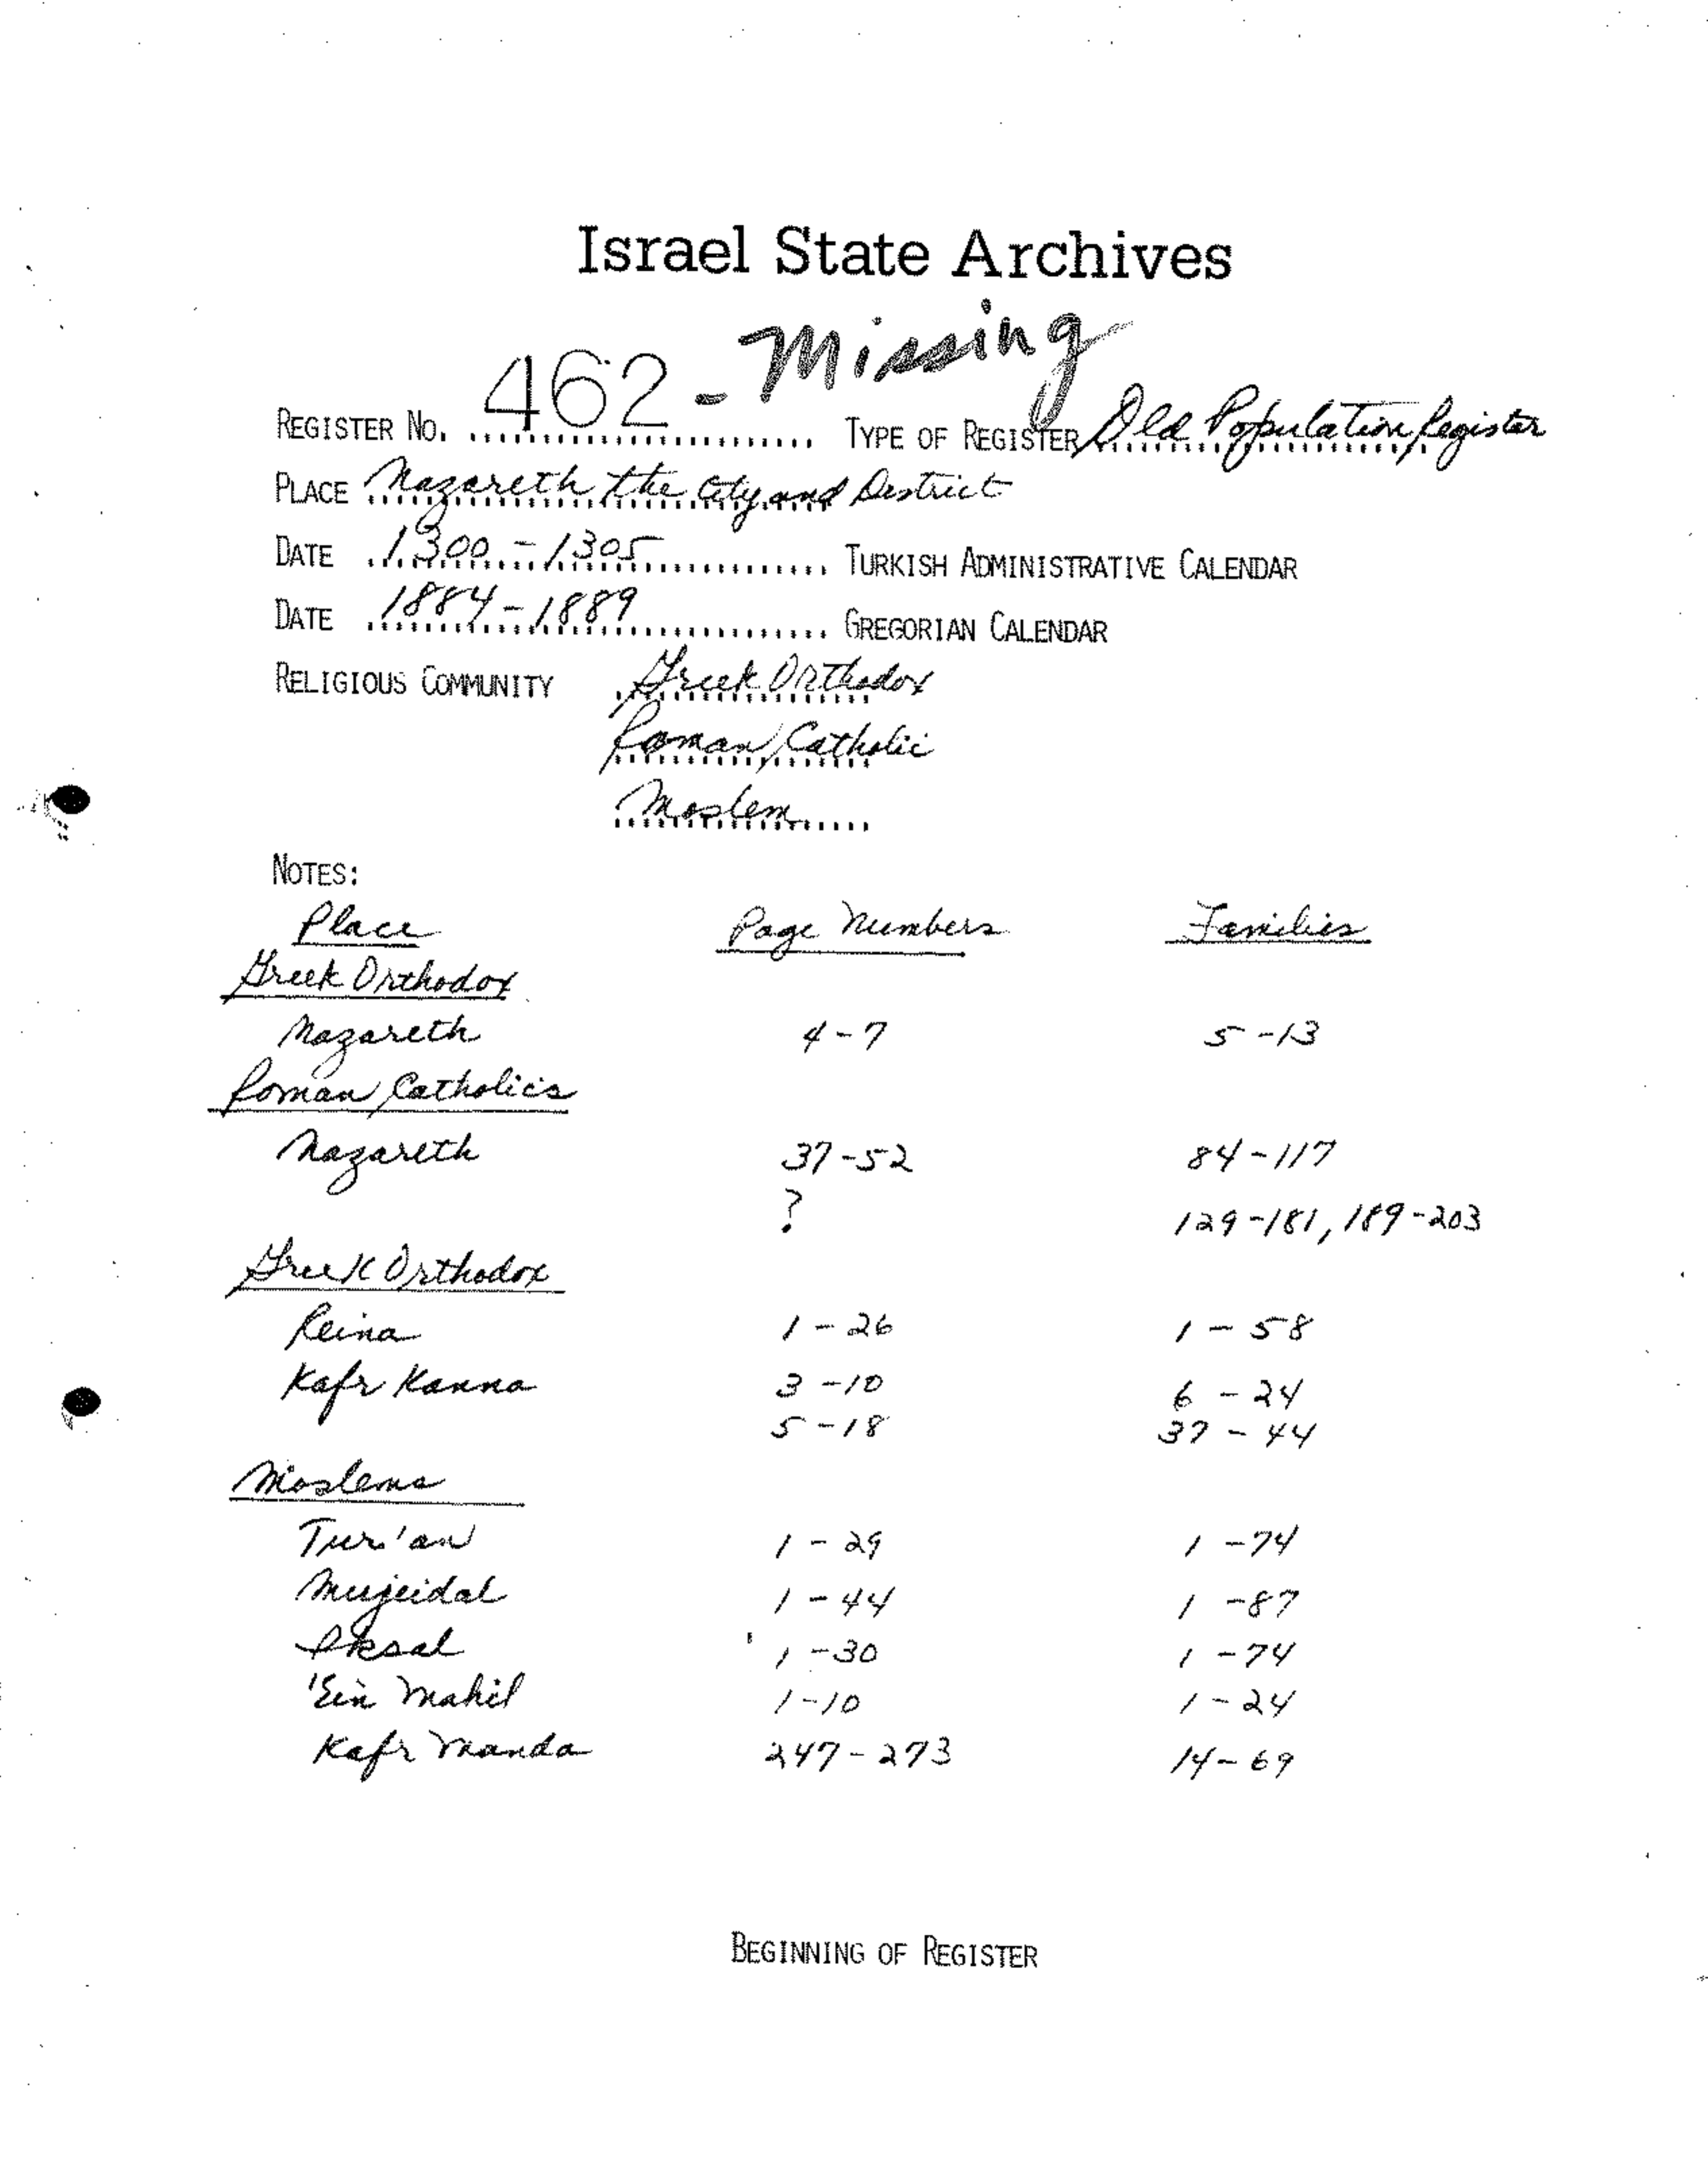 Israel State Archives
462 - Missing
REGISTER NO. TYPE OF REGISTER Old Population Register
PLACE Nazareth the City and District
DATE 1300 - 1305 TURKISH ADMINISTRATIVE CALENDAR
DATE 1884 - 1889 GREGORIAN CALENDAR
RELIGIOUS COMMUNITY Greek Orthodox
Roman Catholic
Moslem
NOTES:
Place Page Numbers Families
Greek Orthodox
Nazareth 4 - 7 5 - 13
Roman Catholics
Nazareth 37 - 52 84 - 117
? 129 - 181, 189 - 203
Greek Orthodox
Reina 1 - 26 1 - 58
Kafr Kanna 3 - 10 6 - 24
5 - 18 37 - 44
Moslems
Tur'an 1 - 29 1 - 74
Mujeidal 1 - 44 1 - 87
Iksal 1 - 30 1 - 74
'Ein Mahil 1 - 10 1 - 24
Kafr Manda 247 - 273 14 - 69
BEGINNING OF REGISTER